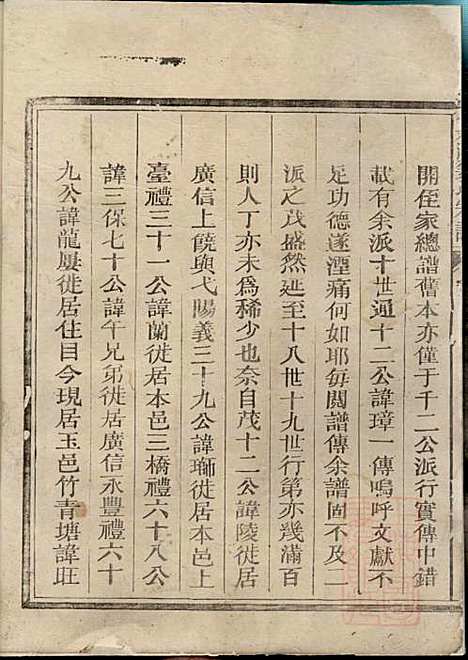 開侄家總譜舊本亦僅于千二公派行實傳中錯
載有余派十世通十二公諱璋一傳嗚呼文獻不
足功德遂湮痛何如耶每閱譜傳余譜固不及二
派之茂盛然延至十八世十九世行第亦幾滿百
則人丁亦未爲稀少也奈自茂十二公諱陵徙居
廣信上饒與弋陽義三十九公諱瑡徙居本邑上
臺禮三十一公諱蘭徙居本邑三橋禮六十八公
諱三保七十公諱午兄弟徙居廣信永豐禮六十
九公諱龍慶徙居住目今現居玉邑竹青塘諱旺